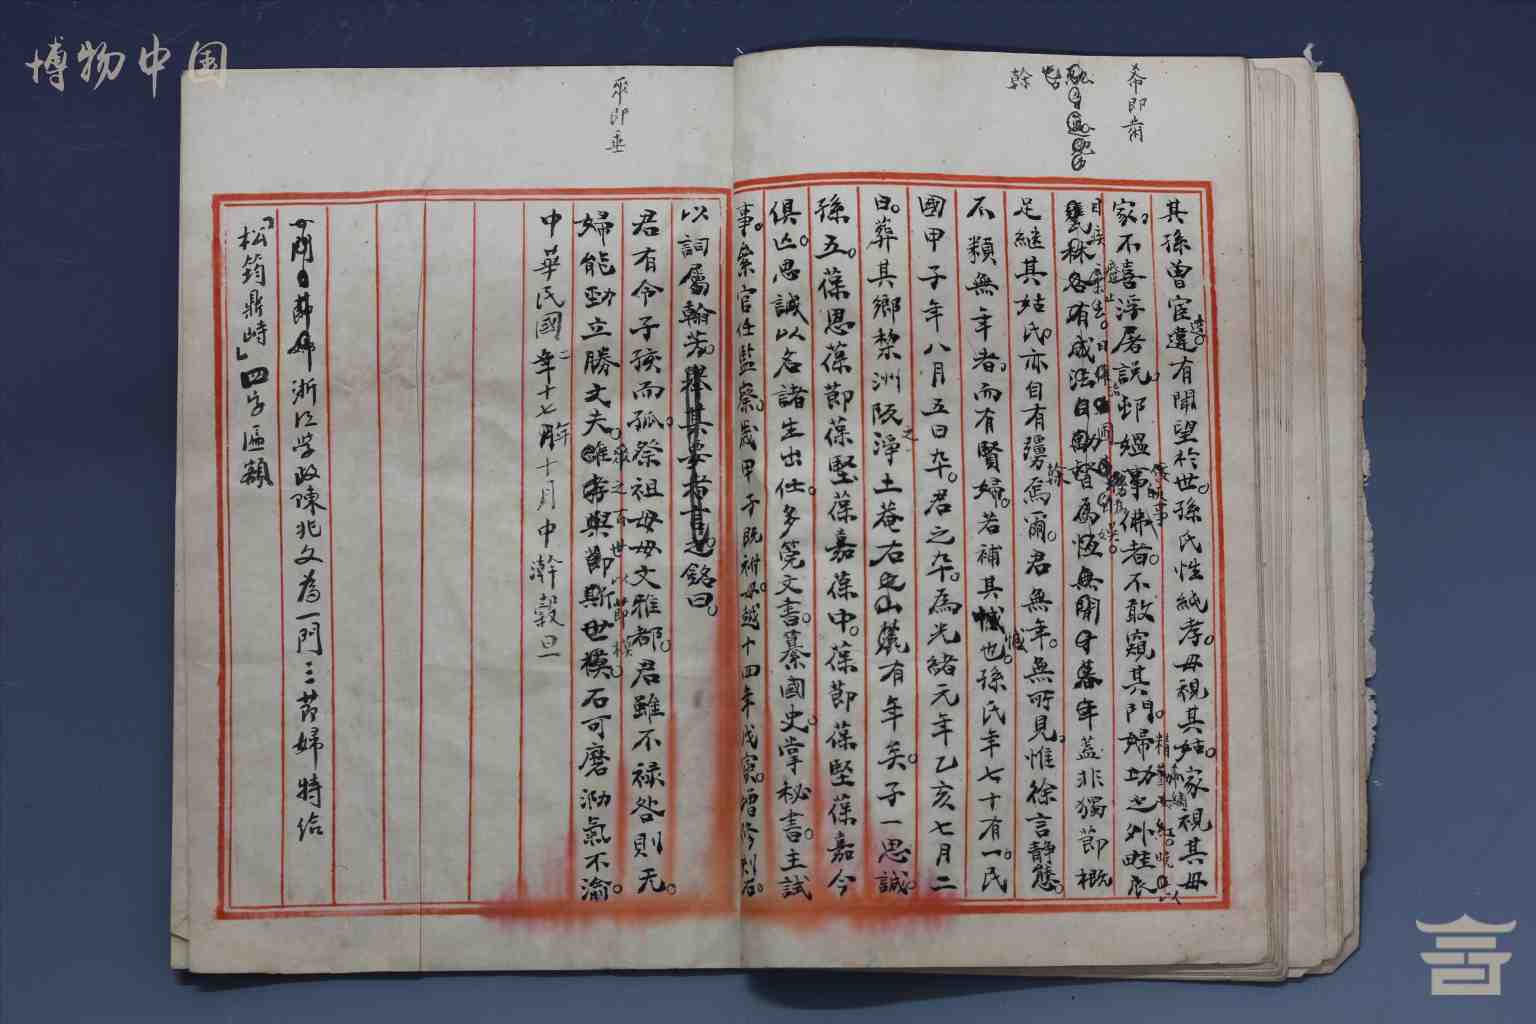 博物中国
希即肯
幹
其孫曾宦達有聞望於世。孫氏性純孝。毋視其姑。家視其毋
家。不喜浮屠說。邨媼事佛者。不敢窺其門。婦功之外畦辰
秫各有成法。自助督爲恆無閒寸晷年蓋非獨節概
足繼其姑氏。亦自有彊勞焉爾。君無年。無所見。惟徐言靜態。
不類無年者。而有賢婦。若補其憾也。孫氏年七十有一。民
國甲子年八月五日卒。君之卒。爲光緒元年乙亥七月二
日。葬其鄉棃洲阪之淨土菴右山麓有年矣。子一思誠。
孫五。葆恩葆節葆堅葆嘉葆中。葆節葆堅葆嘉今
俱亾。思誠以名諸生出仕。多筦文書。纂國史。掌秘書。主試
事。案官任監察。歲甲子既祔毋。越十四年戊寅。增修刻石。
眾即垂
以詞屬翰芳。舉其要者言之銘曰。
君有令子孩而孤。祭祖毋毋文雅都。君雖不祿咎則无。
婦能勁立勝丈夫。眾之百世以節模。石可磨泐氣不渝。
中華民國二十七年十月中澣穀旦
浙江学政陳兆文為一門三節婦特给
「松筠鼎峙」四字匾額